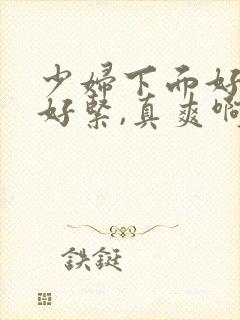 少婦下而好
好緊,真爽啊
鉄鋌